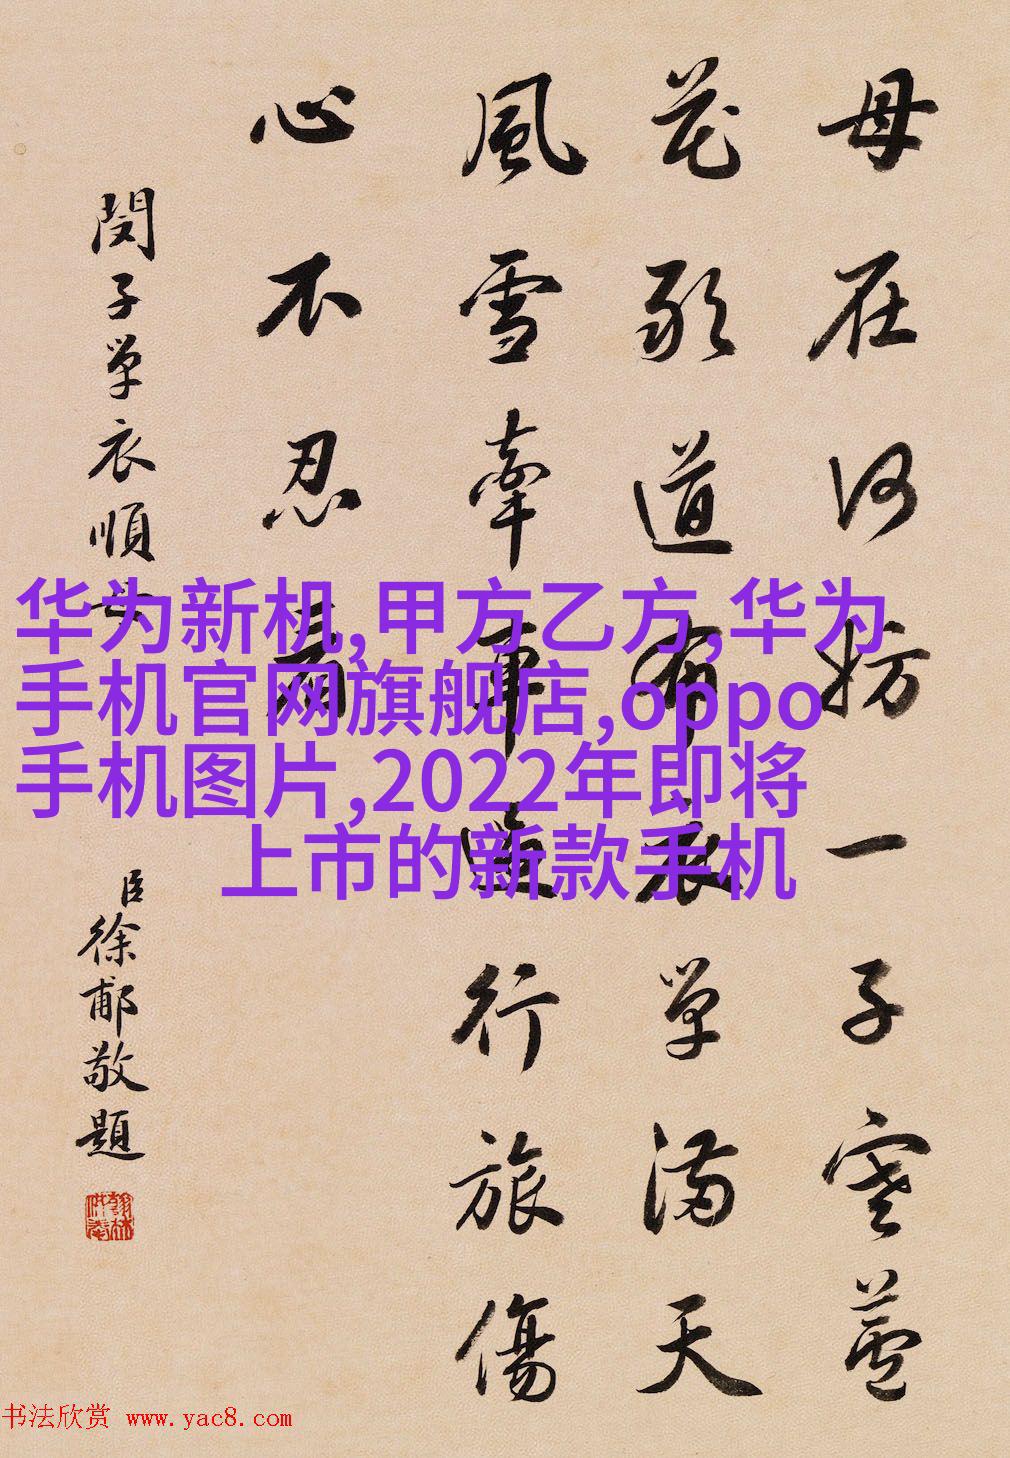 母在何妨一子寒蘆
花敢道布衣單滿天
風雪牽車行旅傷
心不忍看
閔子單衣順母
臣徐郙敬題
华为新机,甲方乙方,华为
手机官网旗舰店,oppo
手机图片,2022年即将
上市的新款手机
书法欣赏 www.yac8.com